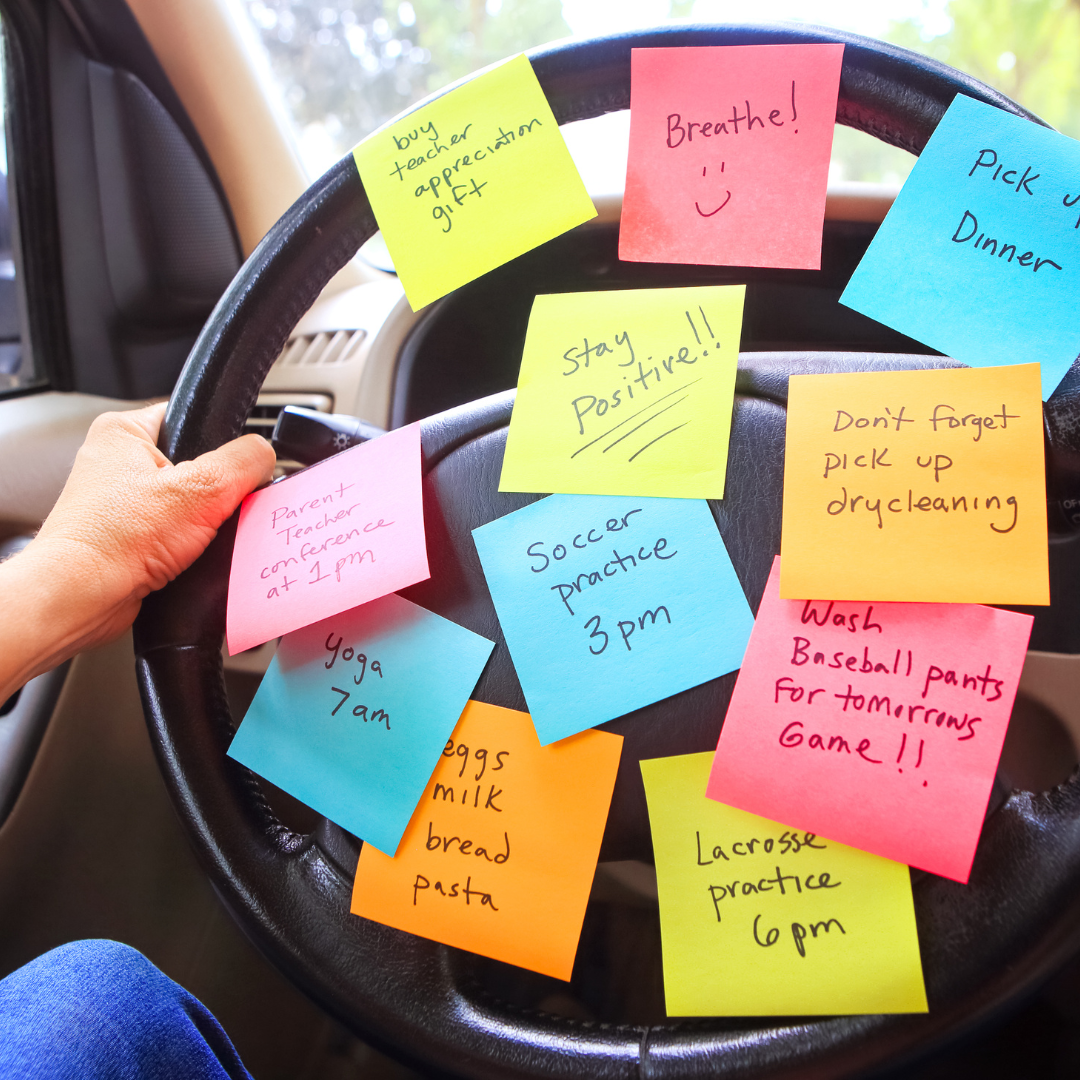 buy
teacher
appreciation
gift
Breathe!
Pick
Dinner
Stay
Positive!!
Don't forget
pick up
drycleaning
Parent
Teacher
conference
at 1pm
Soccer
practice
3pm
Wash
Baseball pants
For tomorrows
Game!!
Yoga
7am
eggs
milk
bread
pasta
Lacrosse
practice
6pm